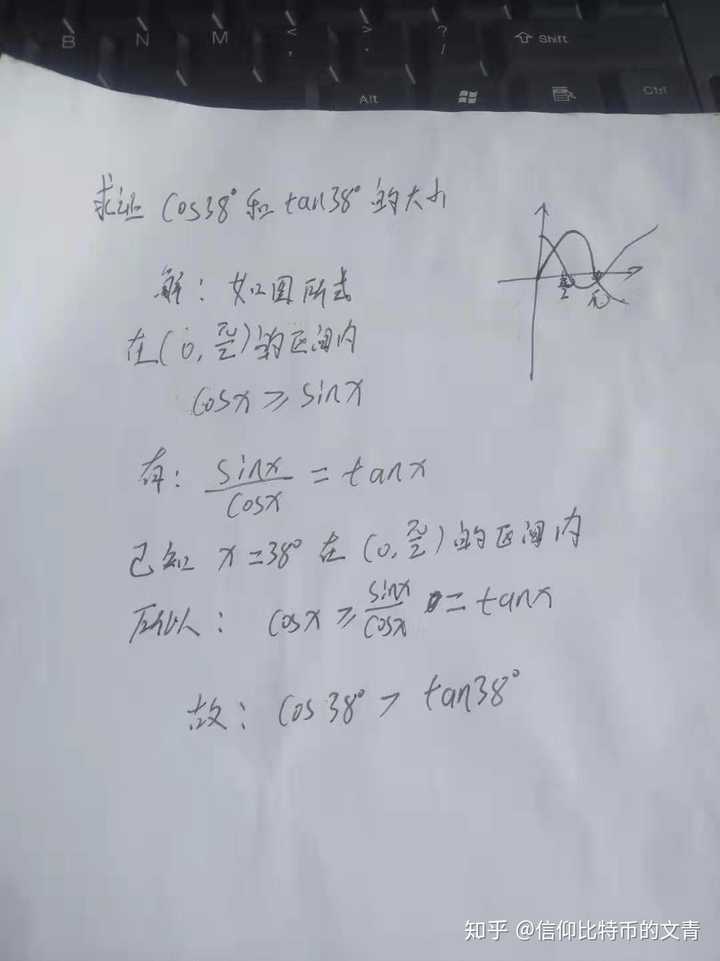 B N M < , > . ? / ⇧ Shift
Alt Ctrl
求证 cos38° 和 tan38° 的大小
解：如图所式
在(0, π/2)的区间内
cosx ≥ sinx
有：sinx/cosx = tanx
已知 x=38° 在 (0, π/2) 的区间内
所以：cosx ≥ sinx/cosx = tanx
故：cos38° > tan38°
π/2 π
知乎 @信仰比特币的文青